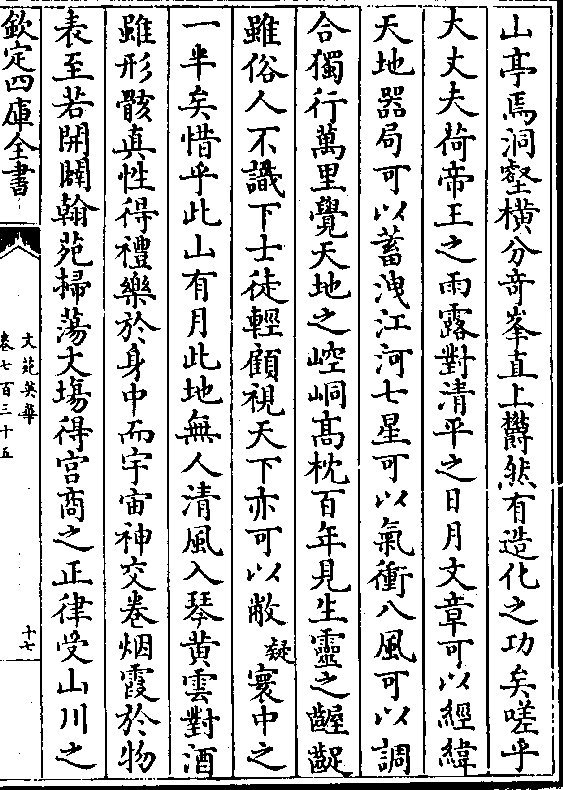 山亭焉洞壑橫分竒峯直上欝然有造化之功矣嗟乎
大丈夫荷帝王之雨露對清平之日月文章可以經緯
天地器局可以蓄洩江河七星可以氣衝八風可以調
合獨行萬里覺天地之崆峒髙枕百年見生靈之齷齪
雖俗人不識下士徒輕顧視天下亦可以敝疑寰中之
一半矣惜乎此山有月此地無人清風入琴黄雲對酒
雖形骸真性得禮樂於身中而宇宙神交卷烟霞於物
表至若開闢翰苑掃蕩文塲得宫商之正律受山川之
欽定四庫全書
文苑英華
卷七百三十五
十七